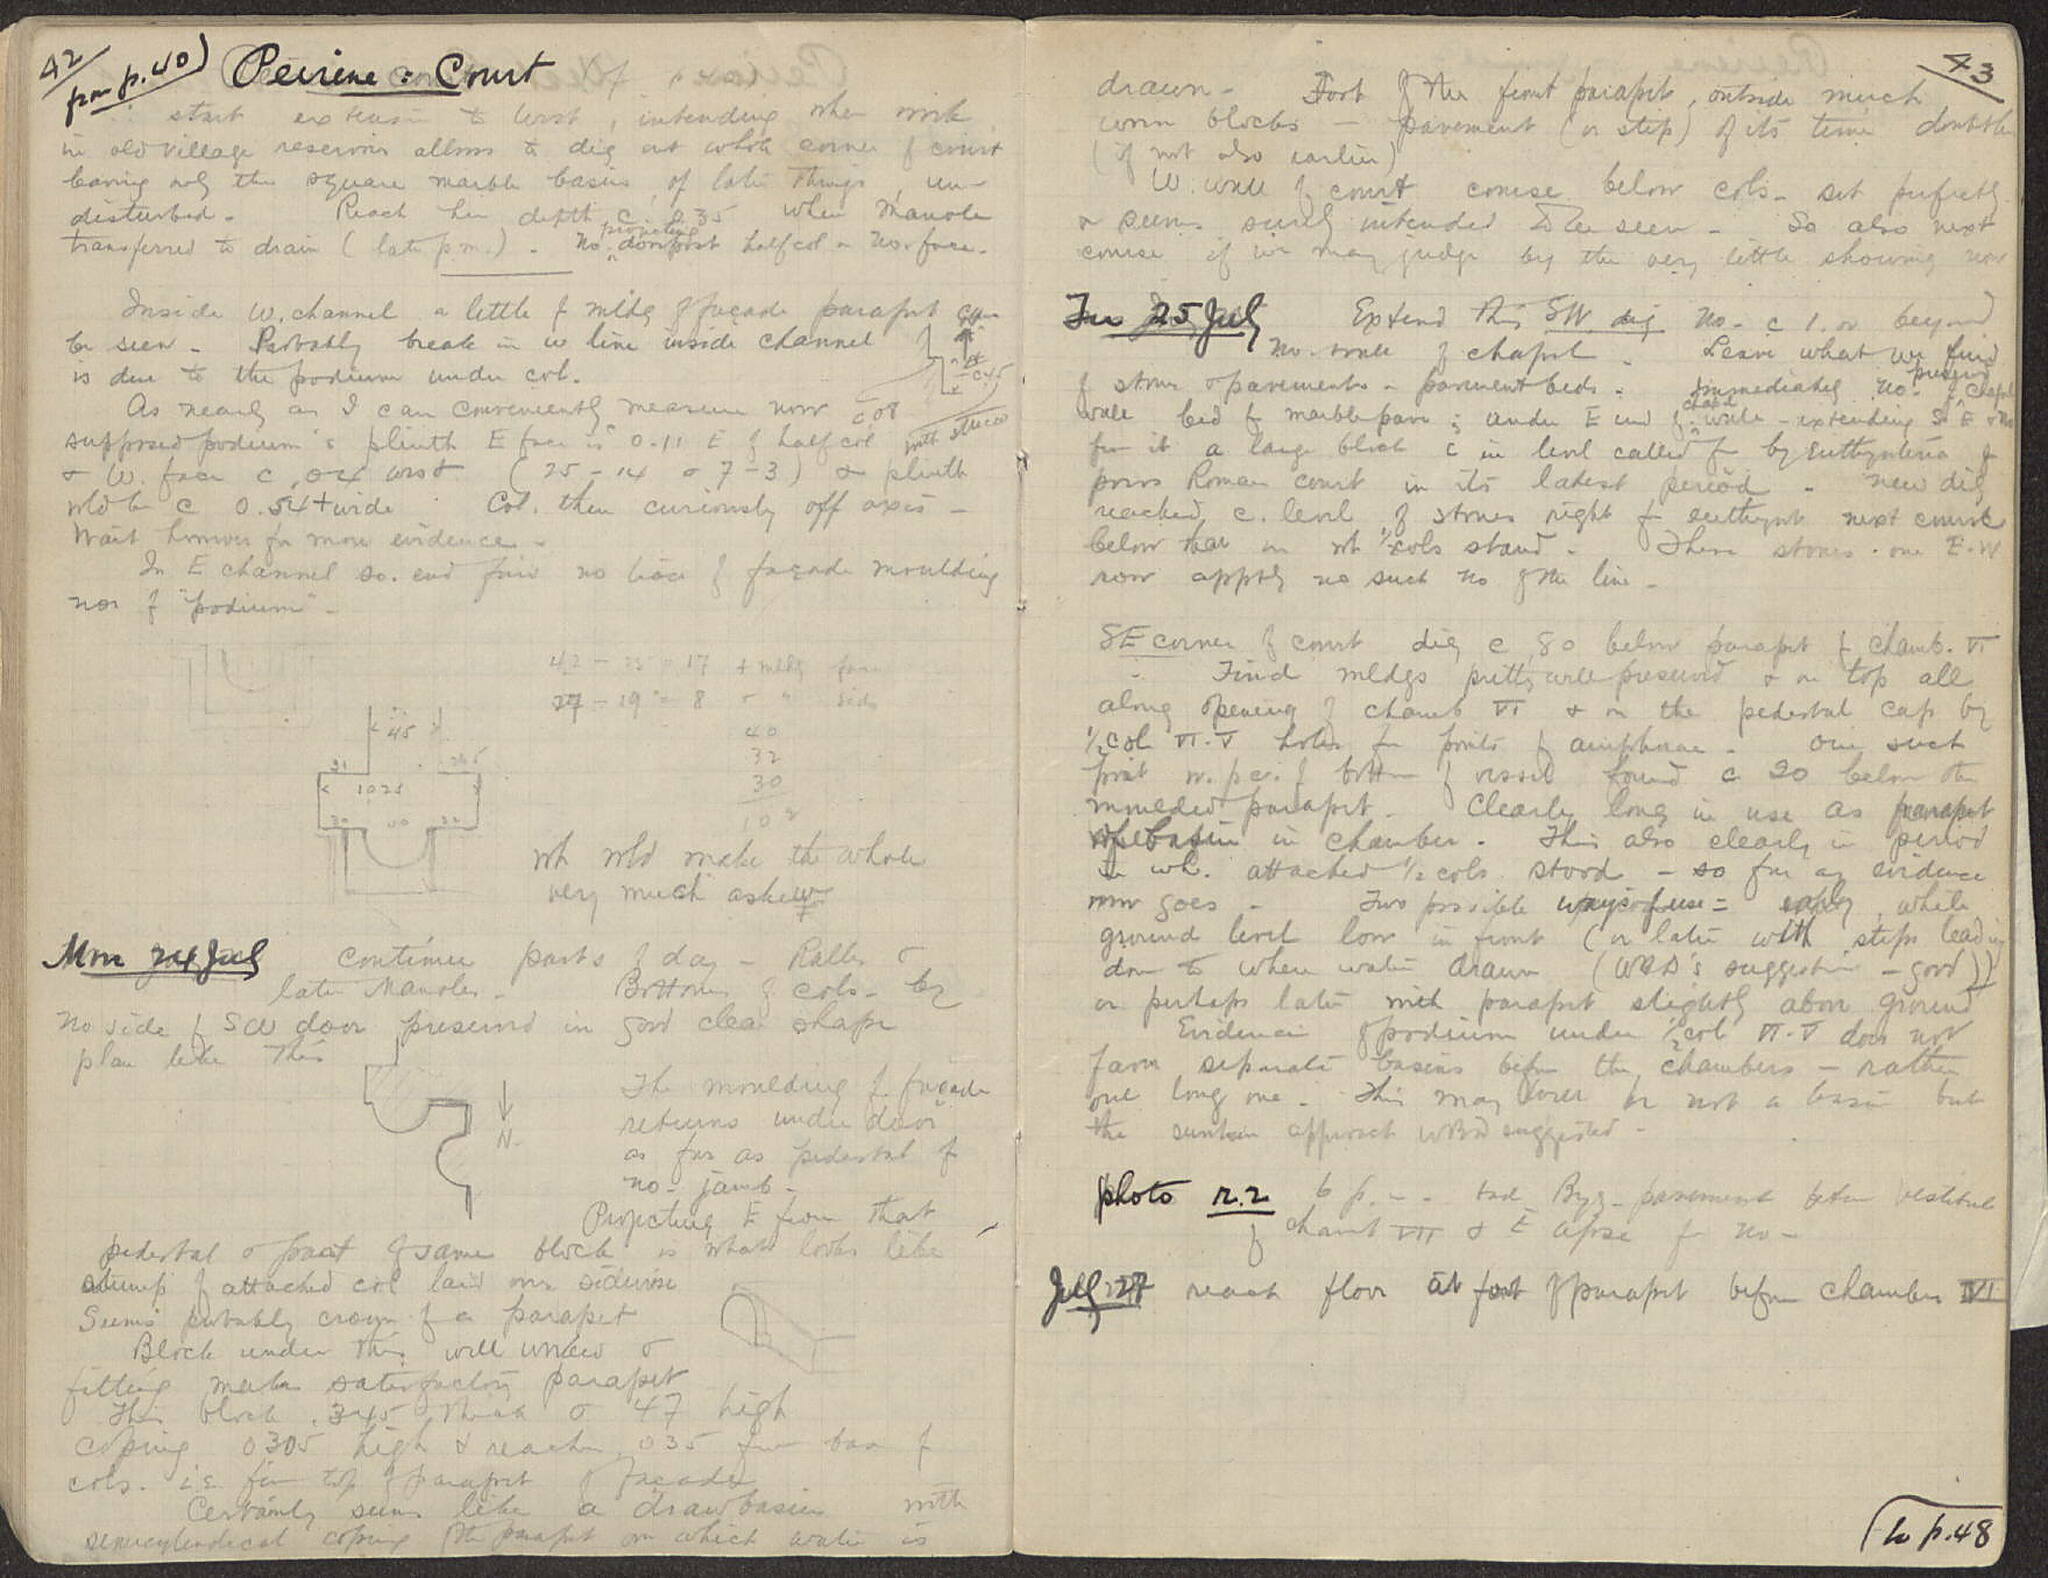 42
from p. 40)
Peirene : Court
start extension to West, intending when work
in old village reservoir allows to dig out whole corner of court
leaving only the square marble basin, of late things, un-
disturbed. Reach here depth c. 0.35 when Manole
transferred to drain (late p.m.). No. projecting half col on No. face.
Inside W. channel a little of mldg of façade parapet can
be seen. Probably break in w line inside channel
is due to the podium under col.
As nearly as I can conveniently measure now
supposed podium's plinth E face is 0.11 E of half col
& W. face c .04 west (25-14 & 7-3) & plinth
wld be c 0.54+ wide Col. then curiously off axis -
with stucco
Wait however for more evidence -
In E channel so. end find no trace of façade moulding
nor of "podium" -
42 - 25 = 17 + mldg face
27 - 19 = 8 " side
40
32
30
102
45
31
1025
wh wld make the whole
very much askew
Mon 24 Jul continue parts of day - Rallis &
later Manoles. Bottoms of cols. by
No side of SW door preserved in good clear shape
plan like this
N.
The moulding of façade
returns under door
as far as pedestal of
no. jamb -
Projecting E from that
pedestal & part of same block is what looks like
stump of attached col laid on sidewise
Seems probably crown of a parapet
Block under this will
fitting make satisfactory parapet
This block .345 thick & 47 high
coping 0305 high & reaches .035 from base of
cols. i.e. from top of parapet of façade
Certainly seems like a draw basin with
semicylindrical coping of the parapet on which water is
43
drawn - Foot of the front parapet, outside much
worn blocks - pavement (or step) of its time doubtless
(if not also earlier)
W. wall of court course below cols. set perfectly
& seems surely intended to be seen - So also next
course if we may judge by the very little showing now
Tue 25 Jul Extend this SW. dig No. c 1. or beyond
No. wall of chapel - Leave what we find
of stones & pavements or pavement beds. Immediately No. of chapel preserved
wall bed of marble pave; under E end of chapel wall - extending
from it a large block c in level called for by Euthynteria of
poros Roman court in its latest period - New dig
reached c. level of stones right for euthynt next course
below that on wh ½ cols stand. These stones. one E-W
now apptly no such No of the line -
SE corner of court dig c .80 below parapet of chamb. VI
Find mldgs pretty well preserved & on top all
along opening of chamb VI & on the pedestal cap by
½ col VI-V holes for points of amphorae. One such
point w. pc. of bottom of vessel found c 20 below the
moulded parapet. Clearly long in use as parapet
of basin in chamber. This also clearly in period
in wh. attached ½ cols stood - so far as evidence
now goes - Two possible ways of use = early, while
ground level low in front (or later with steps leading
down to where water drawn (WBD's suggestion - good))
or perhaps later with parapet slightly above ground
Evidence of podium under ½ col VI-V does not
favor separate basins before the chambers - rather
one long one. This may however be not a basin but
the sunken approach WBD suggested -
photo r.2 6 p.m. tod Byz. pavement betwn vestibule
of chamb VII & E apse of no -
July 27 reach floor at foot of parapet before chamber VI
to p. 48